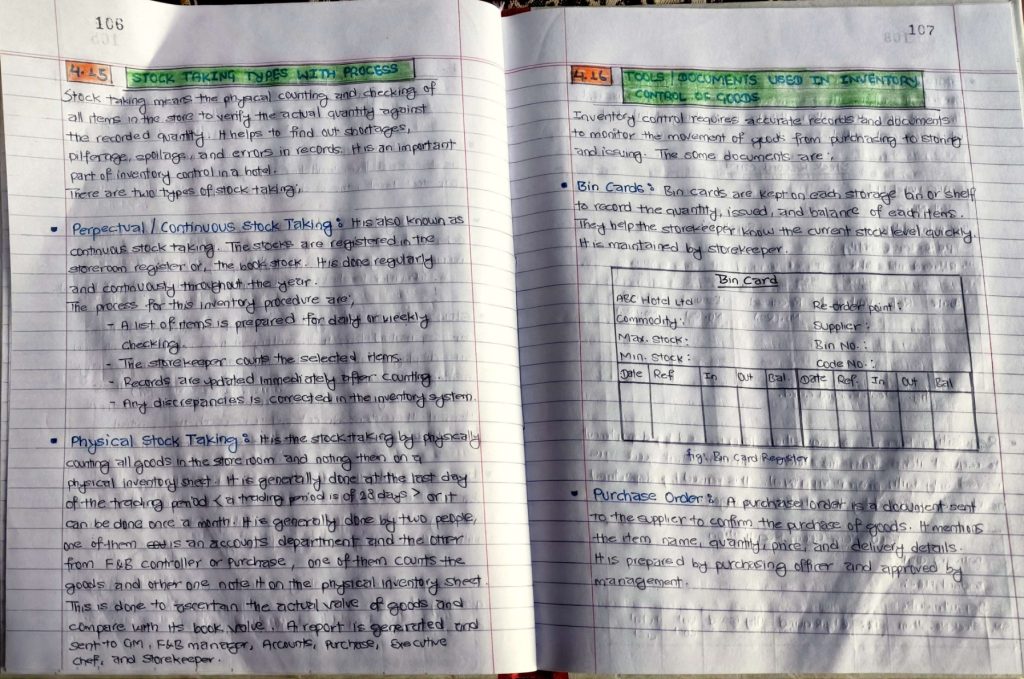 106
4.15 STOCK TAKING TYPES WITH PROCESS
Stock taking means the physical counting and checking of
all items in the store to verify the actual quantity against
the recorded quantity. It helps to find out shortages,
pilferage, spoilage, and errors in records. It is an important
part of inventory control in a hotel.
There are two types of stock taking;
• Perpectual / Continuous Stock Taking : It is also known as
continuous stock taking. The stocks are registered in the
storeroom register or, the book stock. It is done regularly
and continuously throughout the year.
The process for this inventory procedure are;
- A list of items is prepared for daily or weekly
checking.
- The storekeeper counts the selected items.
- Records are updated immediately after counting.
- Any discrepancies is corrected in the inventory system.
• Physical Stock Taking : It is the stock taking by physically
counting all goods in the store room and noting then on a
physical inventory sheet. It is generally done at the last day
of the trading period < a trading period is of 28 days > or it
can be done once a month. It is generally done by two people,
one of them is an accounts department and the other
from F&B controller or Purchase, one of them counts the
goods and other one note it on the physical inventory sheet.
This is done to ascertain the actual value of goods and
compare with its book value. A report is generated and
sent to GM, F&B manager, Accounts, Purchase, Executive
Chef, and Storekeeper.
107
4.16 TOOLS / DOCUMENTS USED IN INVENTORY
CONTROL OF GOODS
Inventory control requires accurate records and documents
to monitor the movement of goods from purchasing to storing
and issuing. The some documents are;
• Bin Cards : Bin cards are kept on each storage bin or shelf
to record the quantity, issued, and balance of each items.
They help the storekeeper know the current stock level quickly.
It is maintained by storekeeper.
Bin Card
ABC Hotel Ltd Re-order point :
Commodity : Supplier :
Max. Stock : Bin No. :
Min. Stock : Code No. :
Date Ref In Out Bal. Date Ref. In Out Bal
fig: Bin Card Register
• Purchase Order : A purchase order is a document sent
to the supplier to confirm the purchase of goods. It mentions
the item name, quantity, price, and delivery details.
It is prepared by purchasing officer and approved by
management.